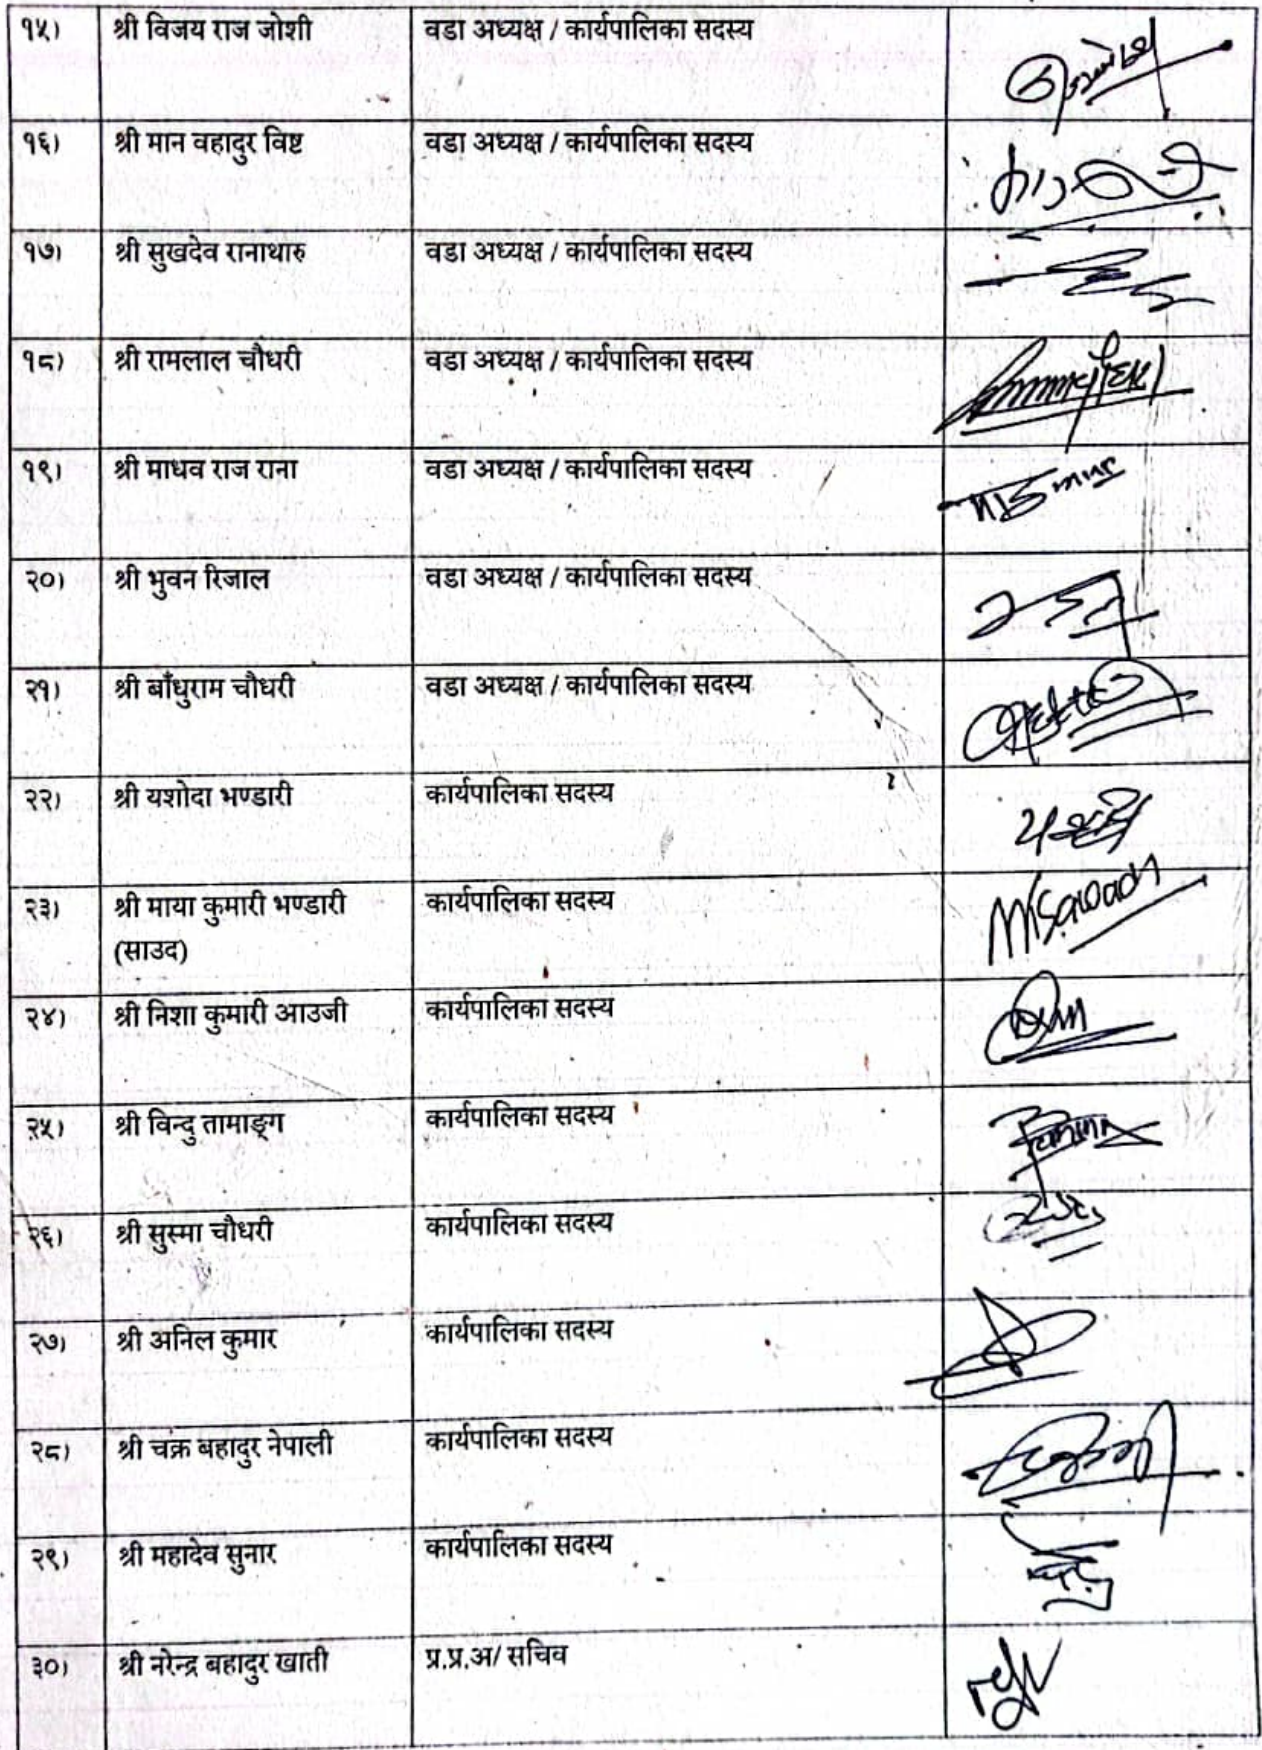 १५) श्री विजय राज जोशी वडा अध्यक्ष / कार्यपालिका सदस्य
१६) श्री मान वहादुर विष्ट वडा अध्यक्ष / कार्यपालिका सदस्य
१७) श्री सुखदेव रानाथारु वडा अध्यक्ष / कार्यपालिका सदस्य
१८) श्री रामलाल चौधरी वडा अध्यक्ष / कार्यपालिका सदस्य
१९) श्री माधव राज राना वडा अध्यक्ष / कार्यपालिका सदस्य
२०) श्री भुवन रिजाल वडा अध्यक्ष / कार्यपालिका सदस्य
२१) श्री बाँधुराम चौधरी वडा अध्यक्ष / कार्यपालिका सदस्य
२२) श्री यशोदा भण्डारी कार्यपालिका सदस्य
२३) श्री माया कुमारी भण्डारी कार्यपालिका सदस्य
(साउद)
२४) श्री निशा कुमारी आउजी कार्यपालिका सदस्य
२५) श्री विन्दु तामाङ्ग कार्यपालिका सदस्य
२६) श्री सुस्मा चौधरी कार्यपालिका सदस्य
२७) श्री अनिल कुमार कार्यपालिका सदस्य
२८) श्री चक्र बहादुर नेपाली कार्यपालिका सदस्य
२९) श्री महादेव सुनार कार्यपालिका सदस्य
३०) श्री नरेन्द्र बहादुर खाती प्र.प्र.अ/ सचिव